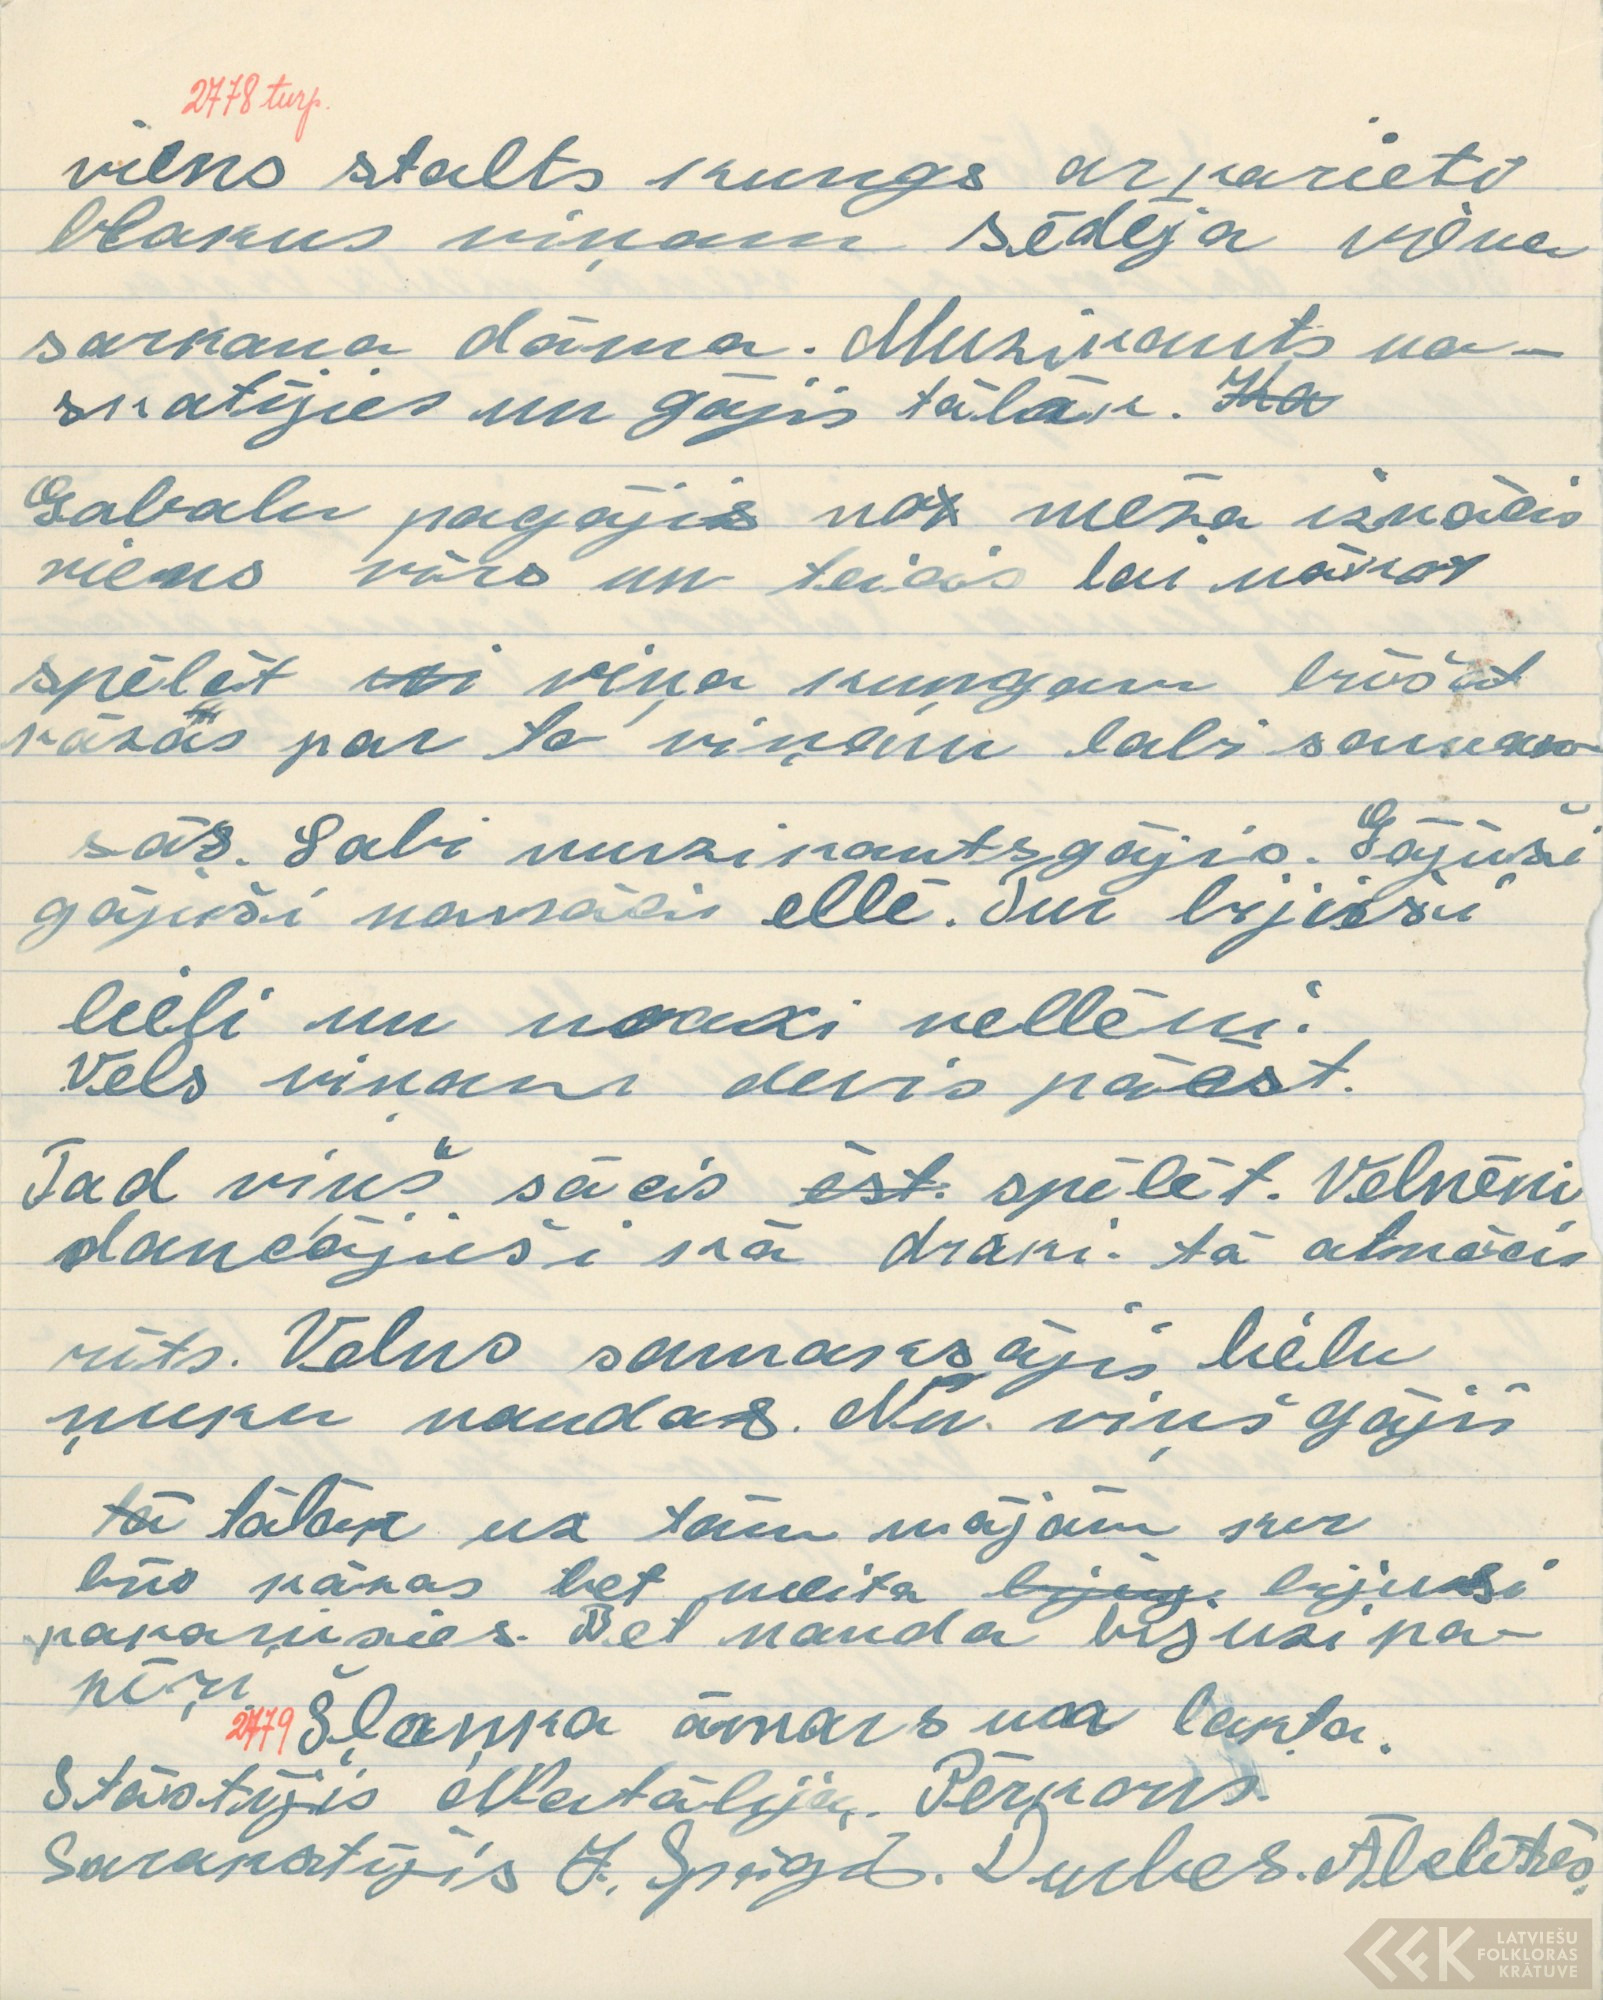 2778 turp.
viens stalts kungs ar karieti
blakus viņam sēdēja viena
sarkana dāma. Muzikants na-
skatījies un gājis tālāk. Ka
Gabalu pagājis no meža iznācis
viens vīrs un teicis lai nākot
spēlēt viņa kungam būšot
kāzas par to viņam labi samak-
sās. Labi muzikants gājis. Gājuši
gājuši nonākuši ellē. Tur bijuši
lieli un mazi vellēni.
Vels viņam devis paēst.
Tad viņš sācis ēst. spēlēt. Velnēni
dancājuši kā draki. tā atnācis
rīts. Velns samaksājis lielu
ņuku naudas. Nu viņš gājis
tā tālāk uz tām mājām kur
būs kāzas bet meita bijuse bijusi
pakārusies. Bet nauda bijusi pa-
pīri
2479 Šļaņka āmars un lakta.
Stāstījis Natālija Pērkons.
Sarakstījis J. Spriģis. Durbes. Ābelītēs.
LATVIEŠU
FOLKLORAS
KRĀTUVE